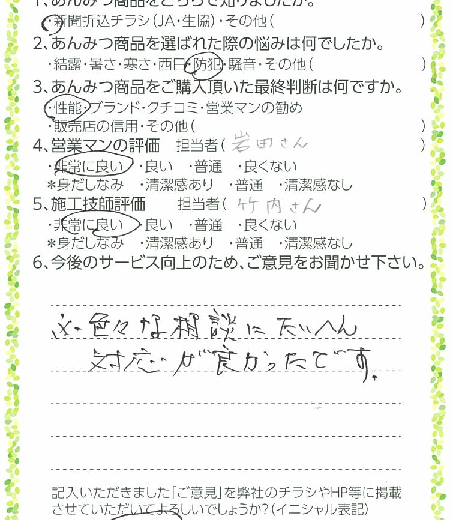 1、あんみつ商品をどちらで知りましたか。
・新聞折込チラシ(JA・生協)・その他( )
2、あんみつ商品を選ばれた際の悩みは何でしたか。
・結露・暑さ・寒さ・西日・防犯・騒音・その他( )
3、あんみつ商品をご購入頂いた最終判断は何ですか。
・性能・ブランド・クチコミ・営業マンの勧め
・販売店の信用・その他( )
4、営業マンの評価 担当者( 岩田さん )
・非常に良い ・良い ・普通 ・良くない
*身だしなみ ・清潔感あり ・普通 ・清潔感なし
5、施工技師評価 担当者( 竹内さん )
・非常に良い ・良い ・普通 ・良くない
*身だしなみ ・清潔感あり ・普通 ・清潔感なし
6、今後のサービス向上のため、ご意見をお聞かせ下さい。
色々な相談にたいへん
対応が良かったです。
記入いただきました「ご意見」を弊社のチラシやHP等に掲載
させていただいてよろしいでしょうか?(イニシャル表記)